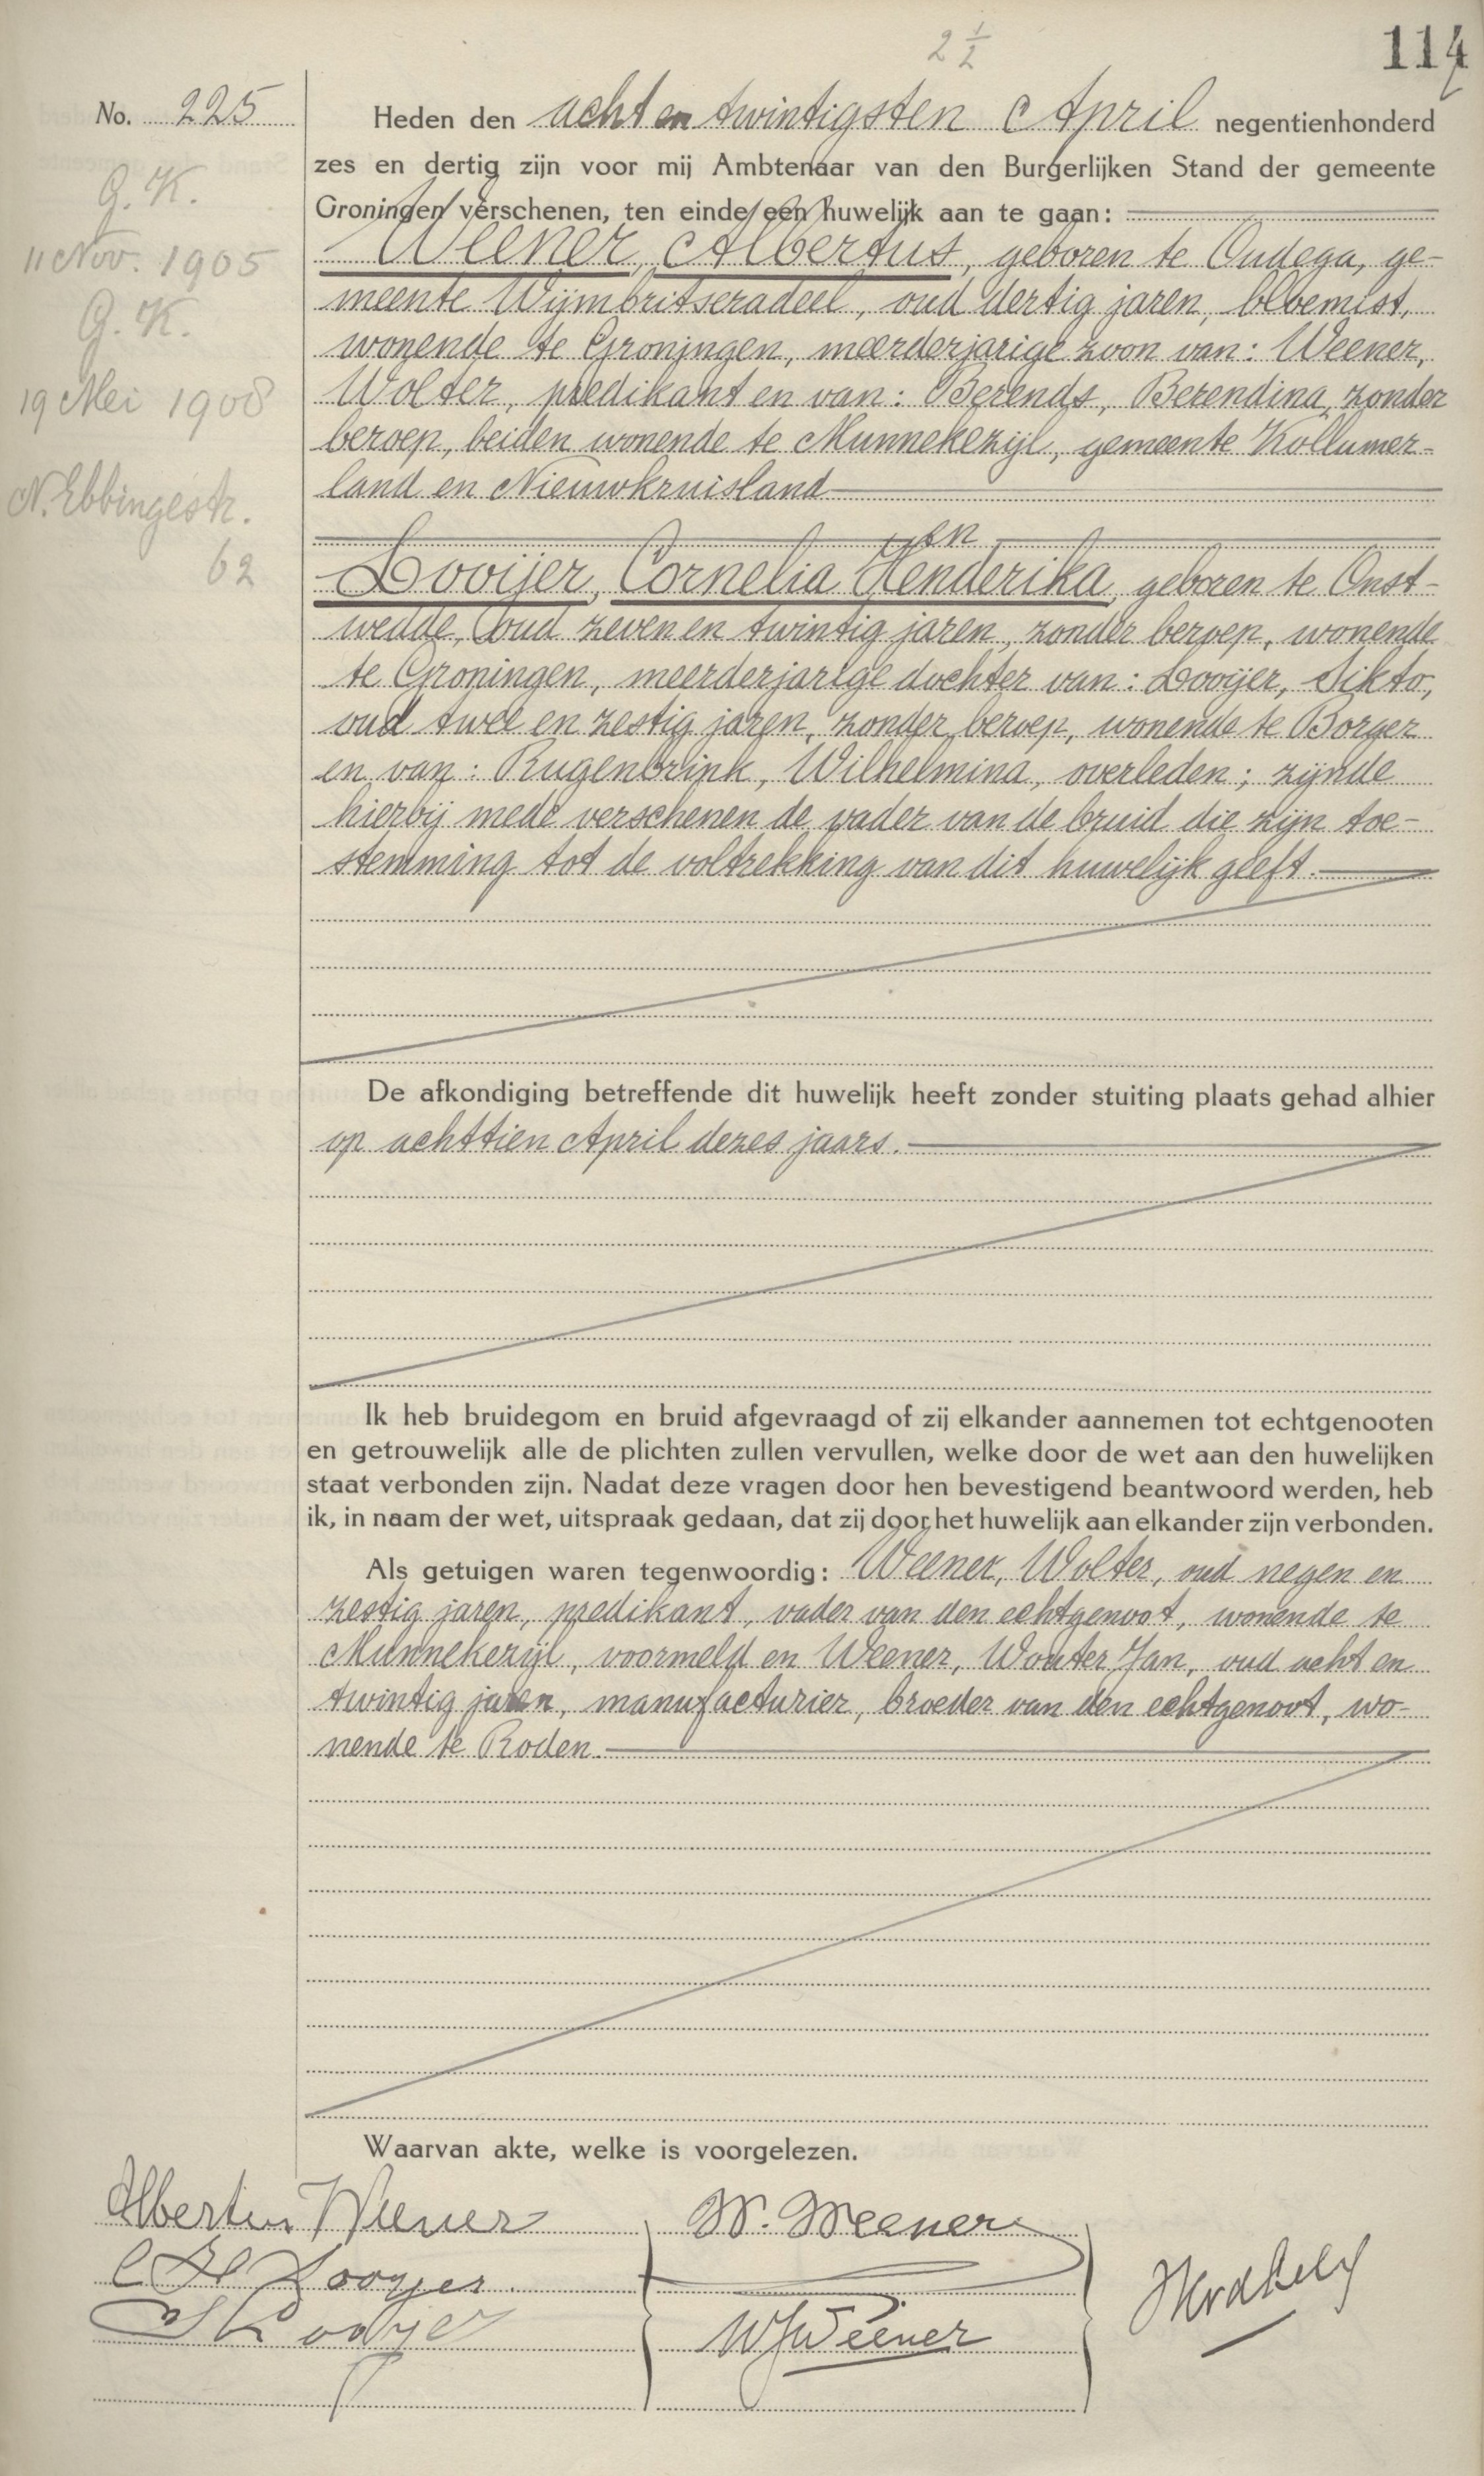 2 ½
114
No. 225
Heden den acht en twintigsten April negentienhonderd
zes en dertig zijn voor mij Ambtenaar van den Burgerlijken Stand der gemeente
Groningen verschenen, ten einde een huwelijk aan te gaan:
Weener, Albertus, geboren te Oudega, ge-
meente Wijmbritseradeel, oud dertig jaren, bloemist,
wonende te Groningen, meerderjarige zoon van: Weener,
Wolter, predikant en van: Berends, Berendina, zonder
beroep, beiden wonende te Munnekezijl, gemeente Kollumer-
land en Nieuwkruisland
en
Looijer, Cornelia Henderika, geboren te Onst-
wedde, oud zeven en twintig jaren, zonder beroep, wonende
te Groningen, meerderjarige dochter van: Looijer, Sikto,
oud twee en zestig jaren, zonder beroep, wonende te Borger
en van: Rugenbrink, Wilhelmina, overleden; zijnde
hierbij mede verschenen de vader van de bruid die zijn toe-
stemming tot de voltrekking van dit huwelijk geeft.
G. K.
11 Nov. 1905
G. K.
19 Mei 1908
N. Ebbingestr.
62
De afkondiging betreffende dit huwelijk heeft zonder stuiting plaats gehad alhier
op achttien April dezes jaars.
Ik heb bruidegom en bruid afgevraagd of zij elkander aannemen tot echtgenooten
en getrouwelijk alle de plichten zullen vervullen, welke door de wet aan den huwelijken
staat verbonden zijn. Nadat deze vragen door hen bevestigend beantwoord werden, heb
ik, in naam der wet, uitspraak gedaan, dat zij door het huwelijk aan elkander zijn verbonden.
Als getuigen waren tegenwoordig: Weener, Wolter, oud negen en
zestig jaren, predikant, vader van den echtgenoot, wonende te
Munnekezijl, voormeld en Weener, Wouter Jan, oud acht en
twintig jaren, manufacturier, broeder van den echtgenoot, wo-
nende te Roden.
Waarvan akte, welke is voorgelezen.
Albertus Weener
C H Looyer
S Looyer
W. Weener
W J Weener